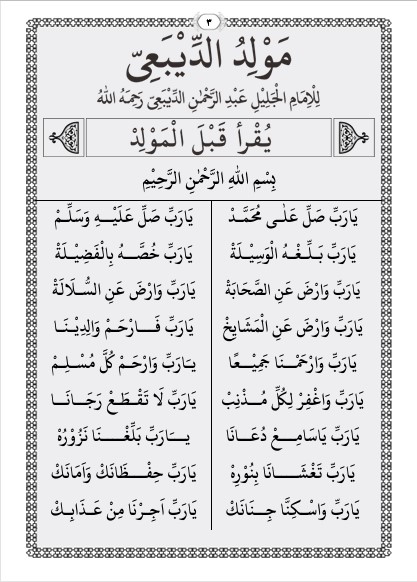 ٣
مَوْلِدُ الدِّيْبَعِىّ
لِلْاِمَامِ الْجَلِيْلِ عَبْدِ الرَّحْمٰنِ الدِّيْبَعِىّ رَحِمَهُ اللهُ
يُقْرأُ قَبْلَ الْمَوْلِدْ
بِسْمِ اللهِ الرَّحْمٰنِ الرَّحِيْمِ
يَارَبِّ صَلِّ عَلٰى مُحَمَّدْ يَارَبِّ صَلِّ عَلَيْهِ وَسَلِّمْ
يَارَبِّ بَلِّغْهُ الْوَسِيْلَةْ يَارَبِّ خُصَّهُ بِالْفَضِيْلَةْ
يَارَبِّ وَارْضَ عَنِ الصَّحَابَةْ يَارَبِّ وَارْضَ عَنِ السُّلَالَةْ
يَارَبِّ وَارْضَ عَنِ الْمَشَايِخْ يَارَبِّ فَارْحَمْ وَالِدِيْنَا
يَارَبِّ وَارْحَمْنَا جَمِيْعًا يَارَبِّ وَارْحَمْ كُلَّ مُسْلِمْ
يَارَبِّ وَاغْفِرْ لِكُلِّ مُذْنِبْ يَارَبِّ لَا تَقْطَعْ رَجَانَا
يَارَبِّ يَاسَامِعْ دُعَانَا يَارَبِّ بَلِّغْنَا نَزُوْرُهْ
يَارَبِّ تَغْشَانَا بِنُوْرِهْ يَارَبِّ حِفْظَانَكْ وَاَمَانَكْ
يَارَبِّ وَاسْكِنَّا جِنَانَكْ يَارَبِّ اَجِرْنَا مِنْ عَذَابِكْ